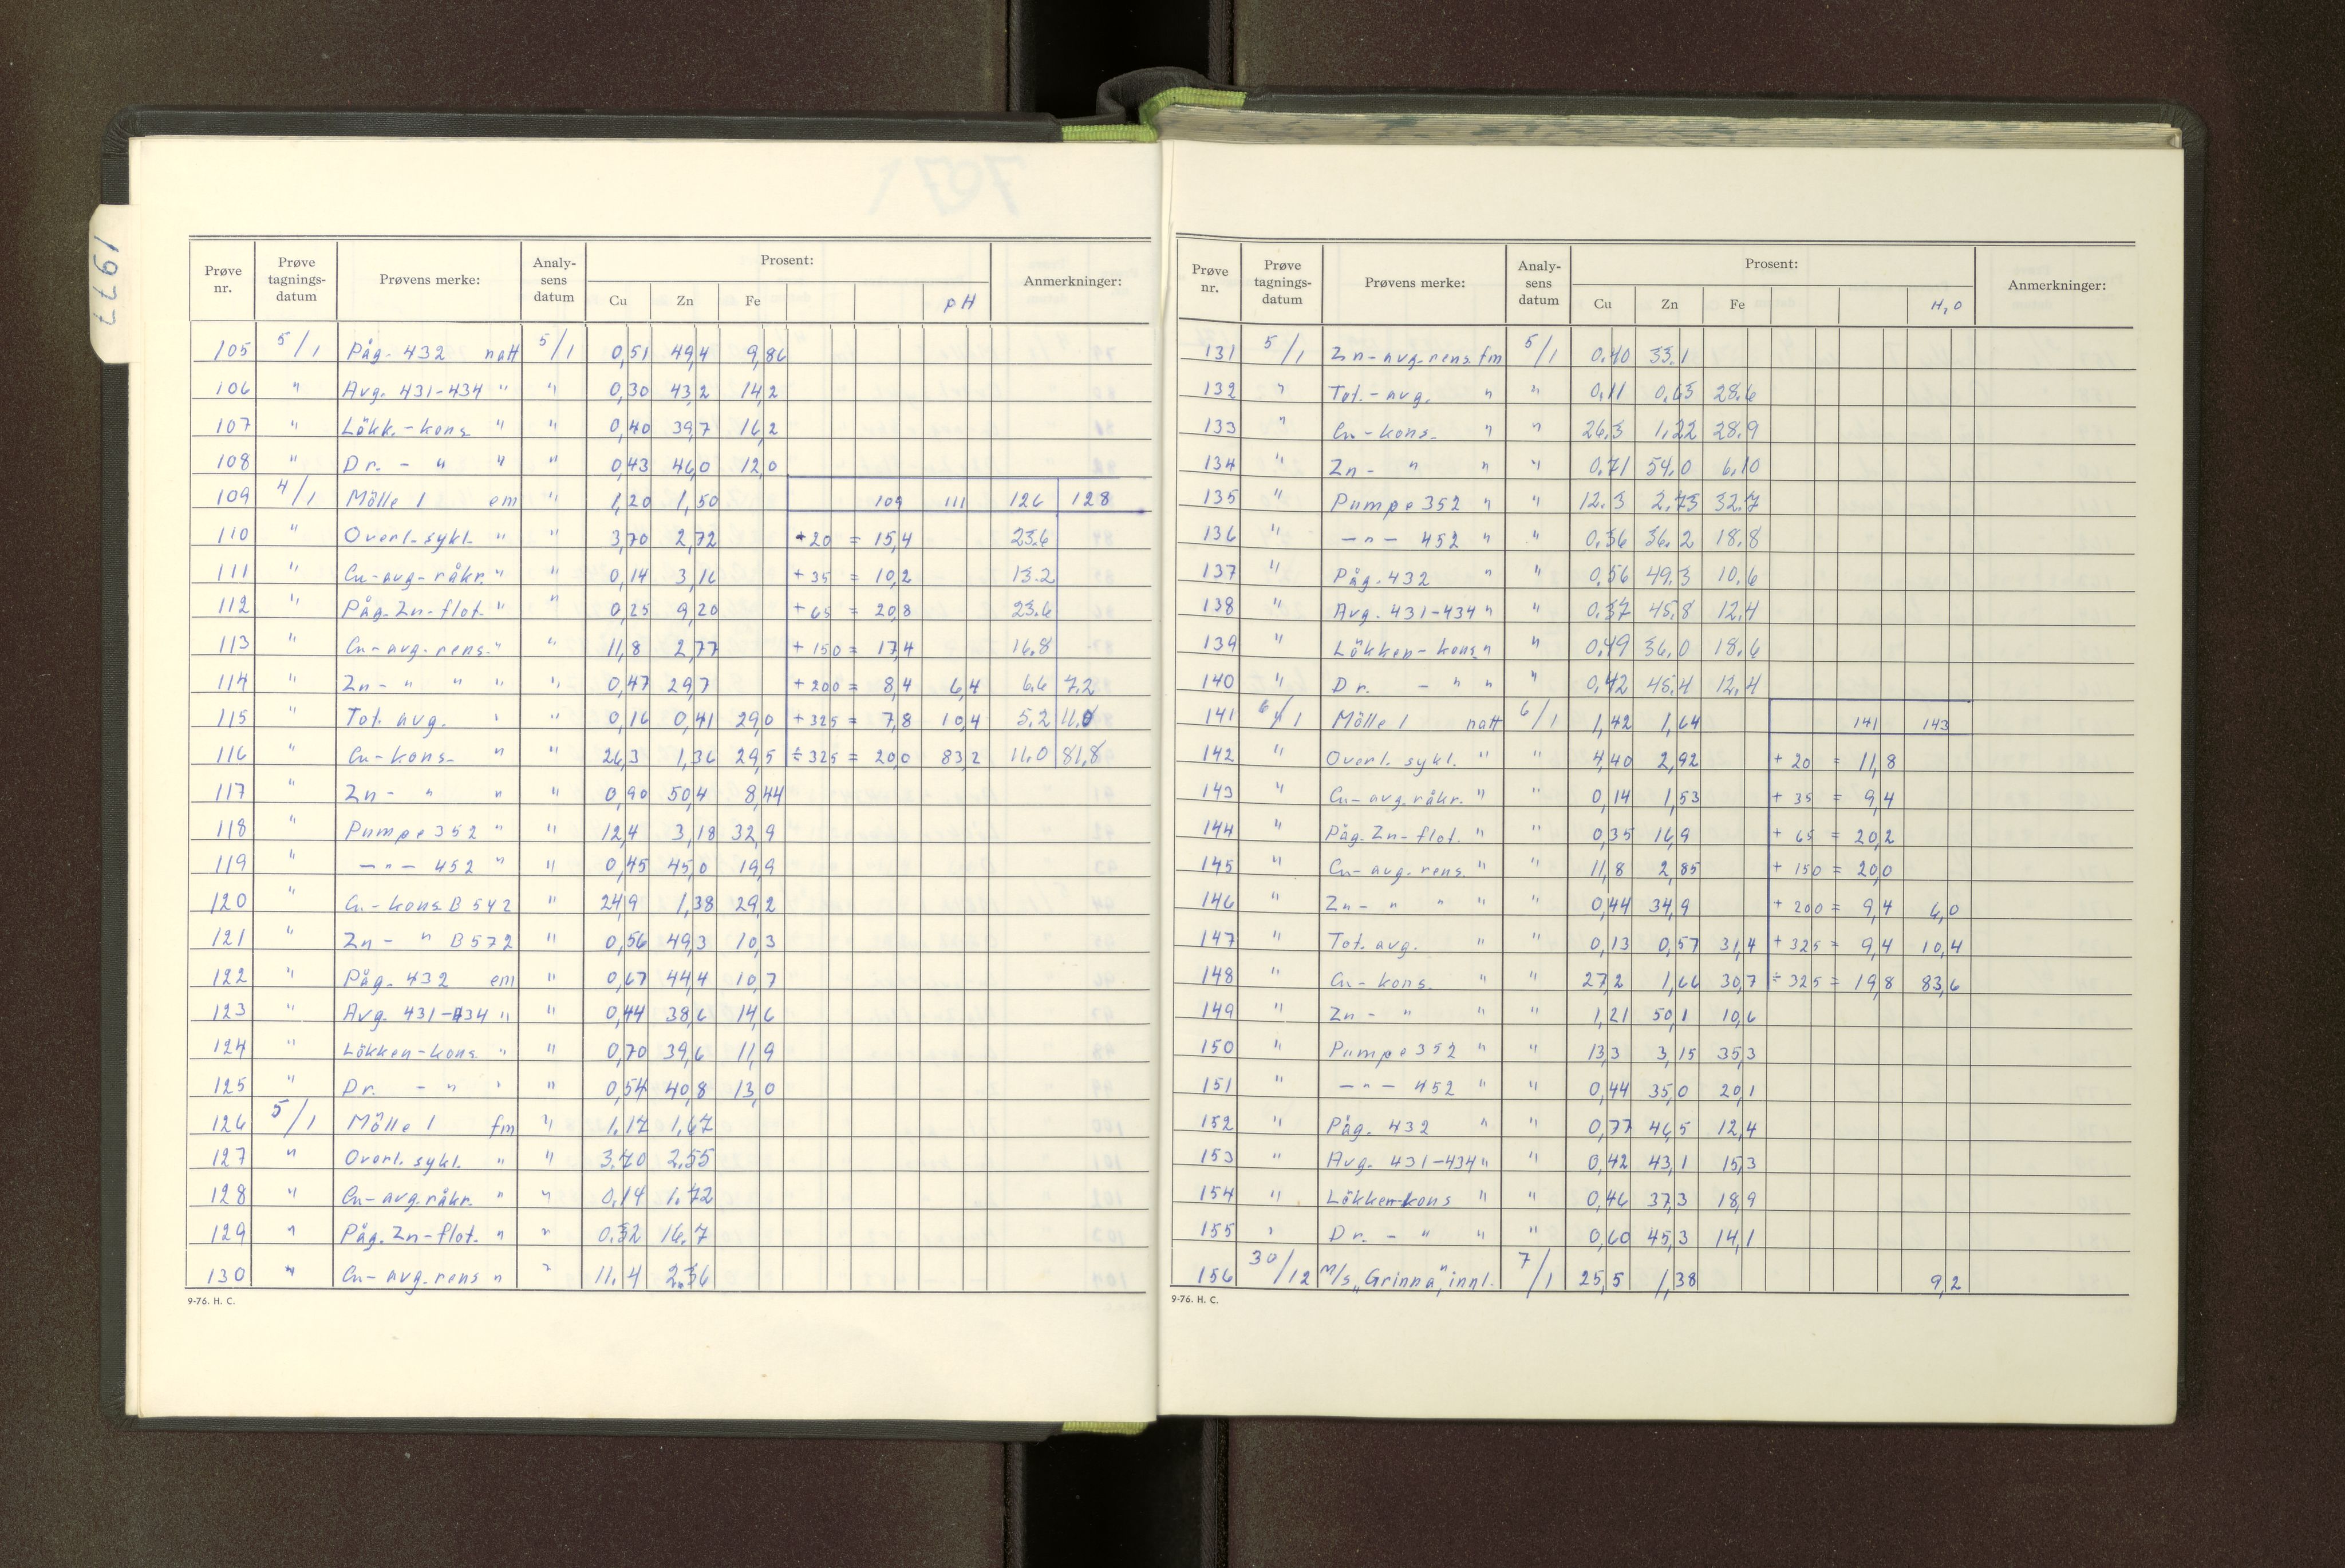 1977
Prøve nr. Prøve tagnings- datum Prøvens merke: Analy- sens datum Prosent: Anmerkninger:
Cu Zn Fe pH
105 5/1 Påg. 432 natt 5/1 0,51 49,4 9,86
106 " Avg. 431-434 " " 0,30 43,2 14,2
107 " Lökk.-kons " " 0,40 39,7 16,2
108 " Dr. - " " " 0,43 46,0 12,0
109 4/1 Mölle 1 em " 1,20 1,50 109 111 126 128
110 " Overl. sykl. " " 3,70 2,72 +20 = 15,4 23.6
111 " Cu-avg-råkr. " " 0,14 3,16 +35 = 10,2 13.2
112 " Påg-Zn-flot. " " 0,25 9,20 +65 = 20,8 23.6
113 " Cu-avg-rens. " " 11,8 2,77 +150 = 17,4 16.8
114 " Zn- " " " " 0,47 29,7 +200 = 8,4 6,4 6.6 7.2
115 " Tot. avg. " " 0,16 0,41 29,0 +325 = 7,8 10,4 5.2 11.0
116 " Cu-kons- " " 26,3 1,36 29,5 ÷325 = 20,0 83,2 11.0 81,8
117 " Zn- " " " 0,90 50,4 8,44
118 " Pumpe 352 " " 12,4 3,18 32,9
119 " -"- 452 " " 0,45 45,0 19,9
120 " Cu-kons. B 542 " 24,9 1,38 29,2
121 " Zn- " B 572 " 0,56 49,3 10,3
122 " Påg. 432 em " 0,67 44,4 10,7
123 " Avg. 431-434 " " 0,44 38,6 14,6
124 " Lökken-kons " " 0,70 39,6 11,9
125 " Dr. - " " " 0,54 40,8 13,0
126 5/1 Mölle 1 fm " 1.17 1,67
127 " Overl. sykl. " " 3.70 2.55
128 " Cu-avg.råkr. " " 0.14 1.72
129 " Påg. Zn-flot. " " 0.32 16.7
130 " Cu-avg.rens " " 11.4 2.36
9-76. H. C.
Prøve nr. Prøve tagnings- datum Prøvens merke: Analy- sens datum Prosent: Anmerkninger:
Cu Zn Fe H2O
131 5/1 Zn-avg-rens. fm 5/1 0.40 33.1
132 " Tot.-avg. " " 0.11 0.65 28.6
133 " Cu-kons- " " 26.3 1,22 28.9
134 " Zn- " " " 0.71 54.0 6.10
135 " Pumpe 352 " " 12.3 2,73 32.7
136 " -"- 452 " " 0.36 36.2 18.8
137 " Påg. 432 " " 0,56 49.3 10.6
138 " Avg. 431-434 " " 0.37 45.8 12.4
139 " Lökken-kons " " 0.49 36.0 18.6
140 " Dr. - " " " 0,42 45.4 12.4
141 6/1 Mölle 1 natt 6/1 1,42 1,64 141 143
142 " Overl. sykl. " " 4,40 2,92 +20 = 11,8
143 " Cu-avg.råkr. " " 0,14 1,53 +35 = 9,4
144 " Påg. Zn-flot. " " 0,35 16,9 +65 = 20,2
145 " Cu-avg.rens. " " 11,8 2,85 +150 = 20,0
146 " Zn- " " " " 0,44 34,9 +200 = 9,4 6,0
147 " Tot. avg. " " 0,13 0,57 31,4 +325 = 9,4 10,4
148 " Cu-kons. " " 27,2 1,66 30,7 ÷325 = 19,8 83,6
149 " Zn- " " " 1,21 50,1 10,6
150 " Pumpe 352 " " 13,3 3,15 35,3
151 " -"- 452 " " 0,44 35,0 20,1
152 " Påg. 432 " " 0,77 46,5 12,4
153 " Avg. 431-434 " " 0,42 43,1 15,3
154 " Lökken-kons " " 0,46 37,3 18,9
155 " Dr. - " " " 0,60 45,3 14,1
156 30/12 M/s "Grinna", innl. 7/1 25,5 1,38 9,2
9-76. H. C.